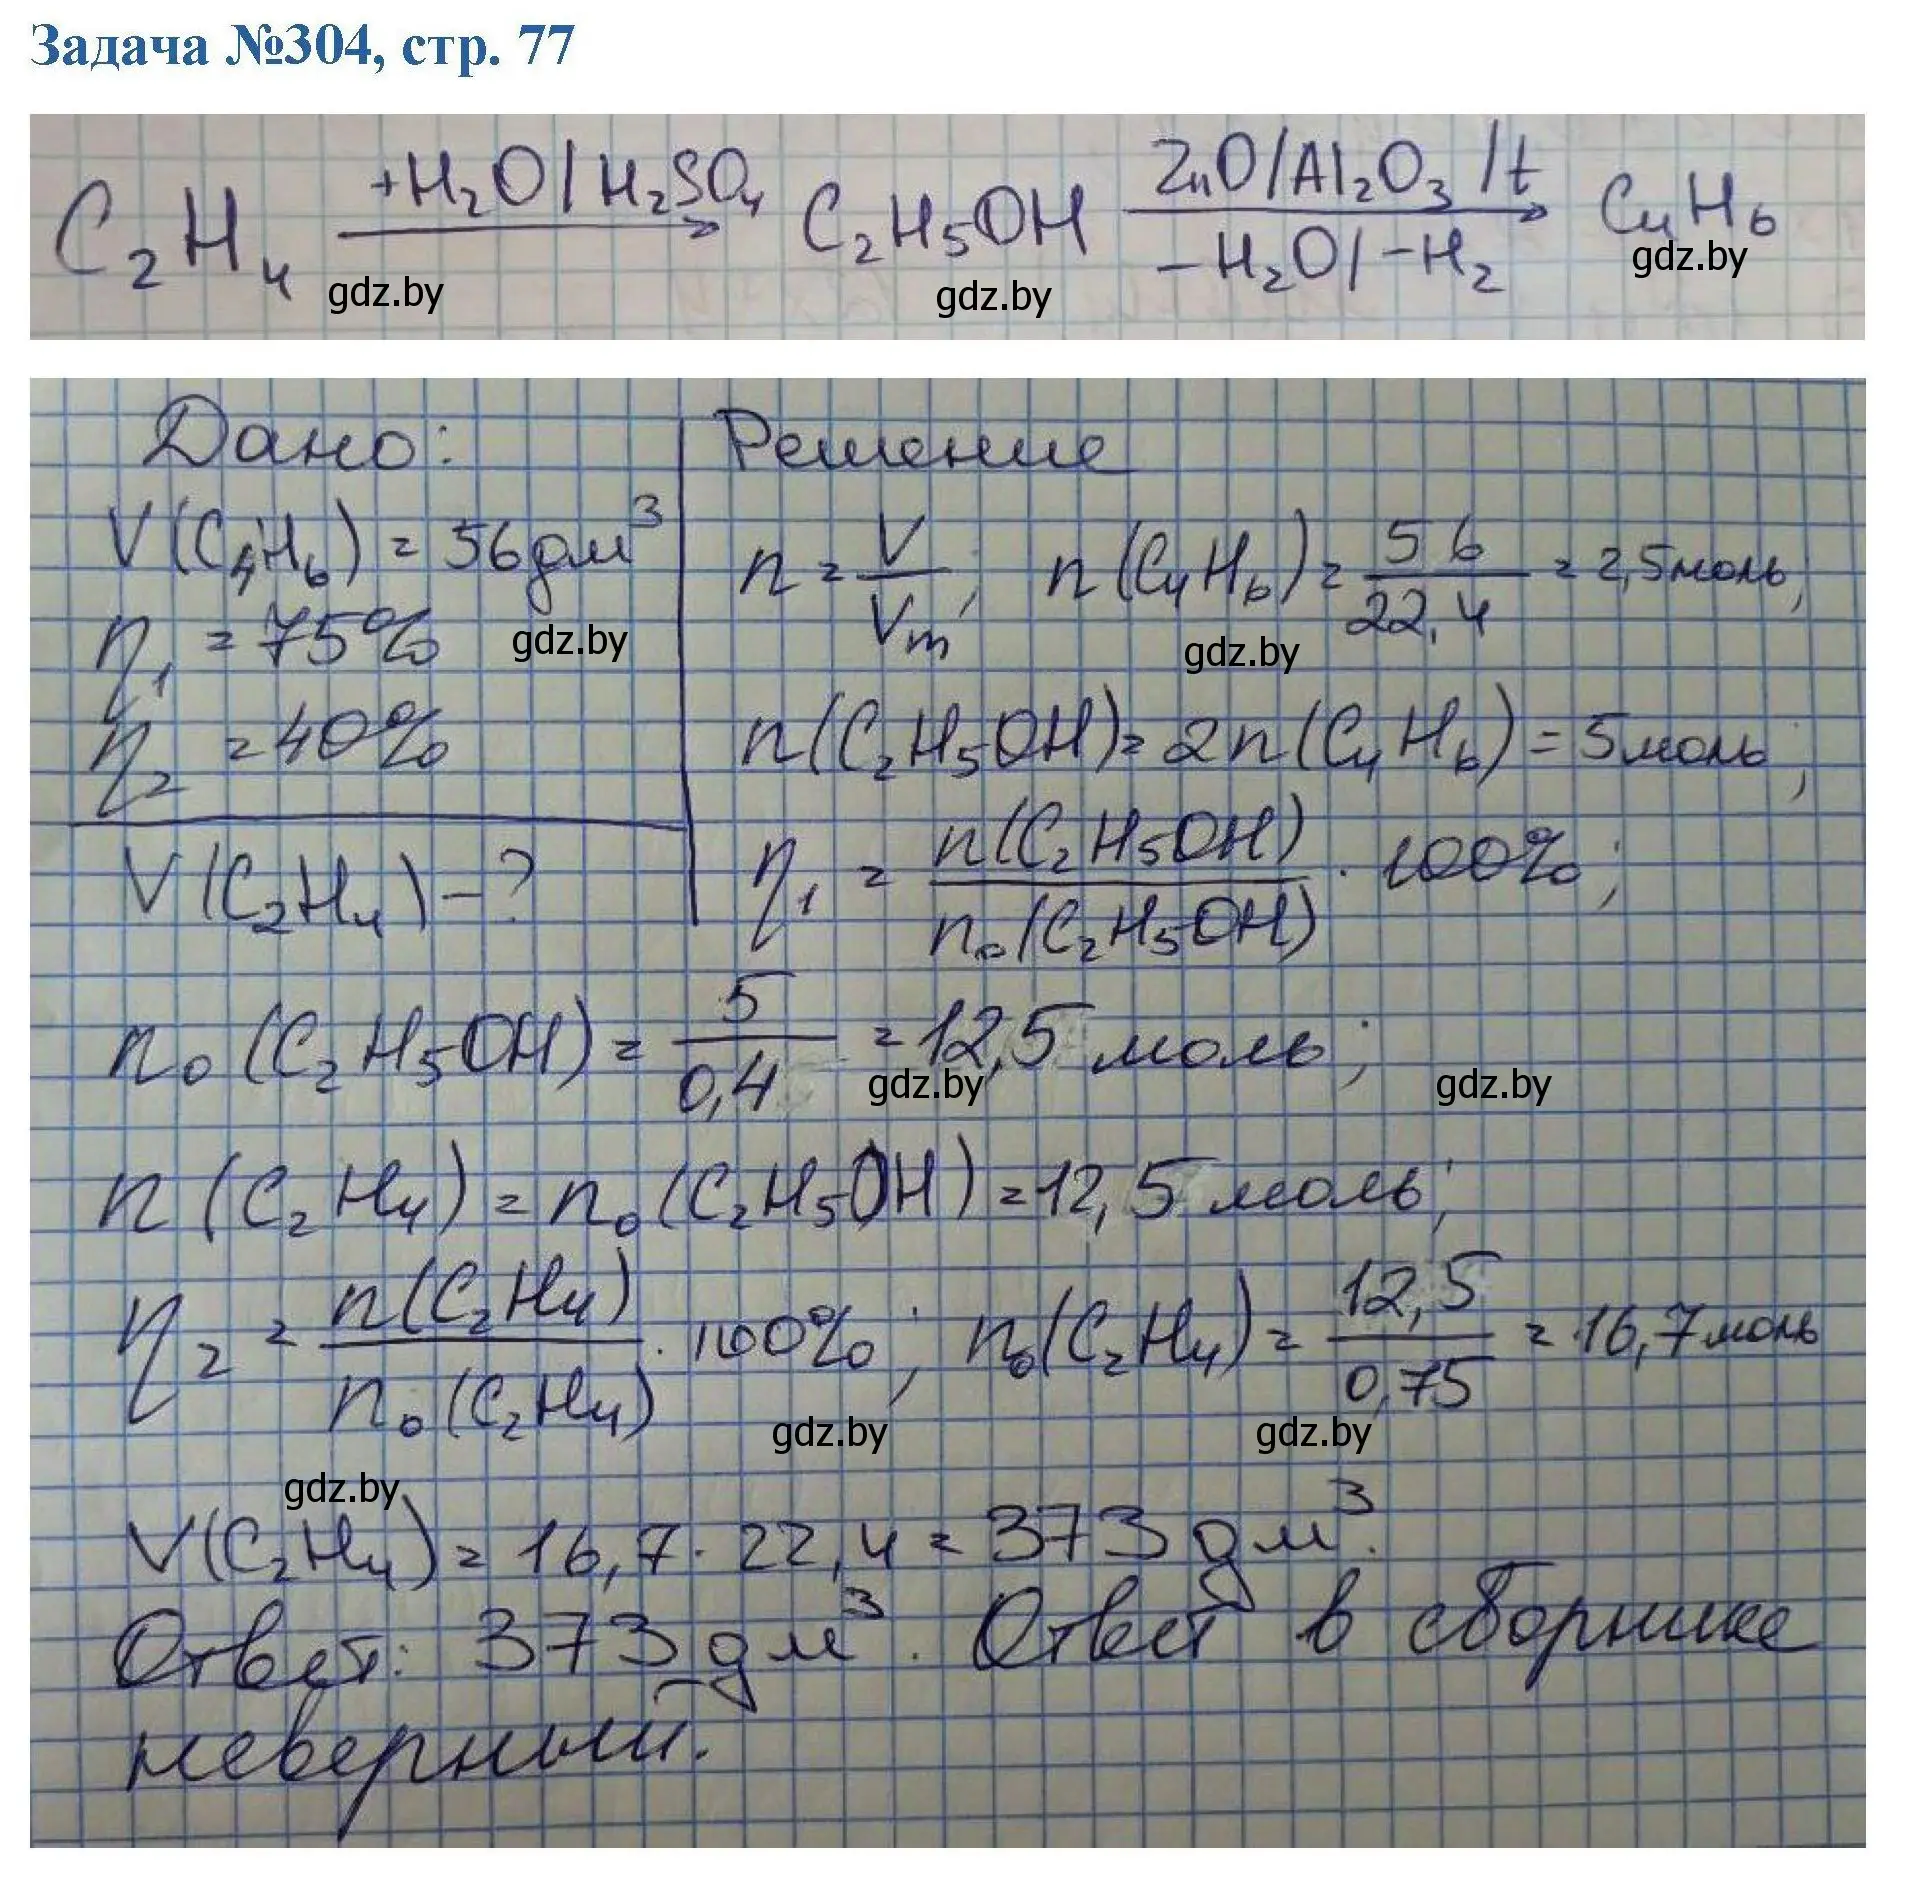 Задача №304, стр. 77
C₂H₄ +H₂O/H₂SO₄ → C₂H₅OH ZnO/Al₂O₃/t → –H₂O/–H₂ C₄H₆
gdz.by gdz.by gdz.by
Дано:
V(C₄H₆) = 56 дм³
η₁ = 75%
gdz.by
η₂ = 40%
V(C₂H₄) – ?
Решение
n = V/Vm; n(C₄H₆) = 56/22,4 = 2,5 моль;
gdz.by
n(C₂H₅OH) = 2n(C₄H₆) = 5 моль;
η₁ = n(C₂H₅OH)/n₀(C₂H₅OH) · 100%;
n₀(C₂H₅OH) = 5/0,4 = 12,5 моль;
gdz.by gdz.by
n(C₂H₄) = n₀(C₂H₅OH) = 12,5 моль;
η₂ = n(C₂H₄)/n₀(C₂H₄) · 100%; n₀(C₂H₄) = 12,5/0,75 = 16,7 моль
gdz.by gdz.by
gdz.by
V(C₂H₄) = 16,7 · 22,4 = 373 дм³.
Ответ: 373 дм³. Ответ в сборнике
неверный.